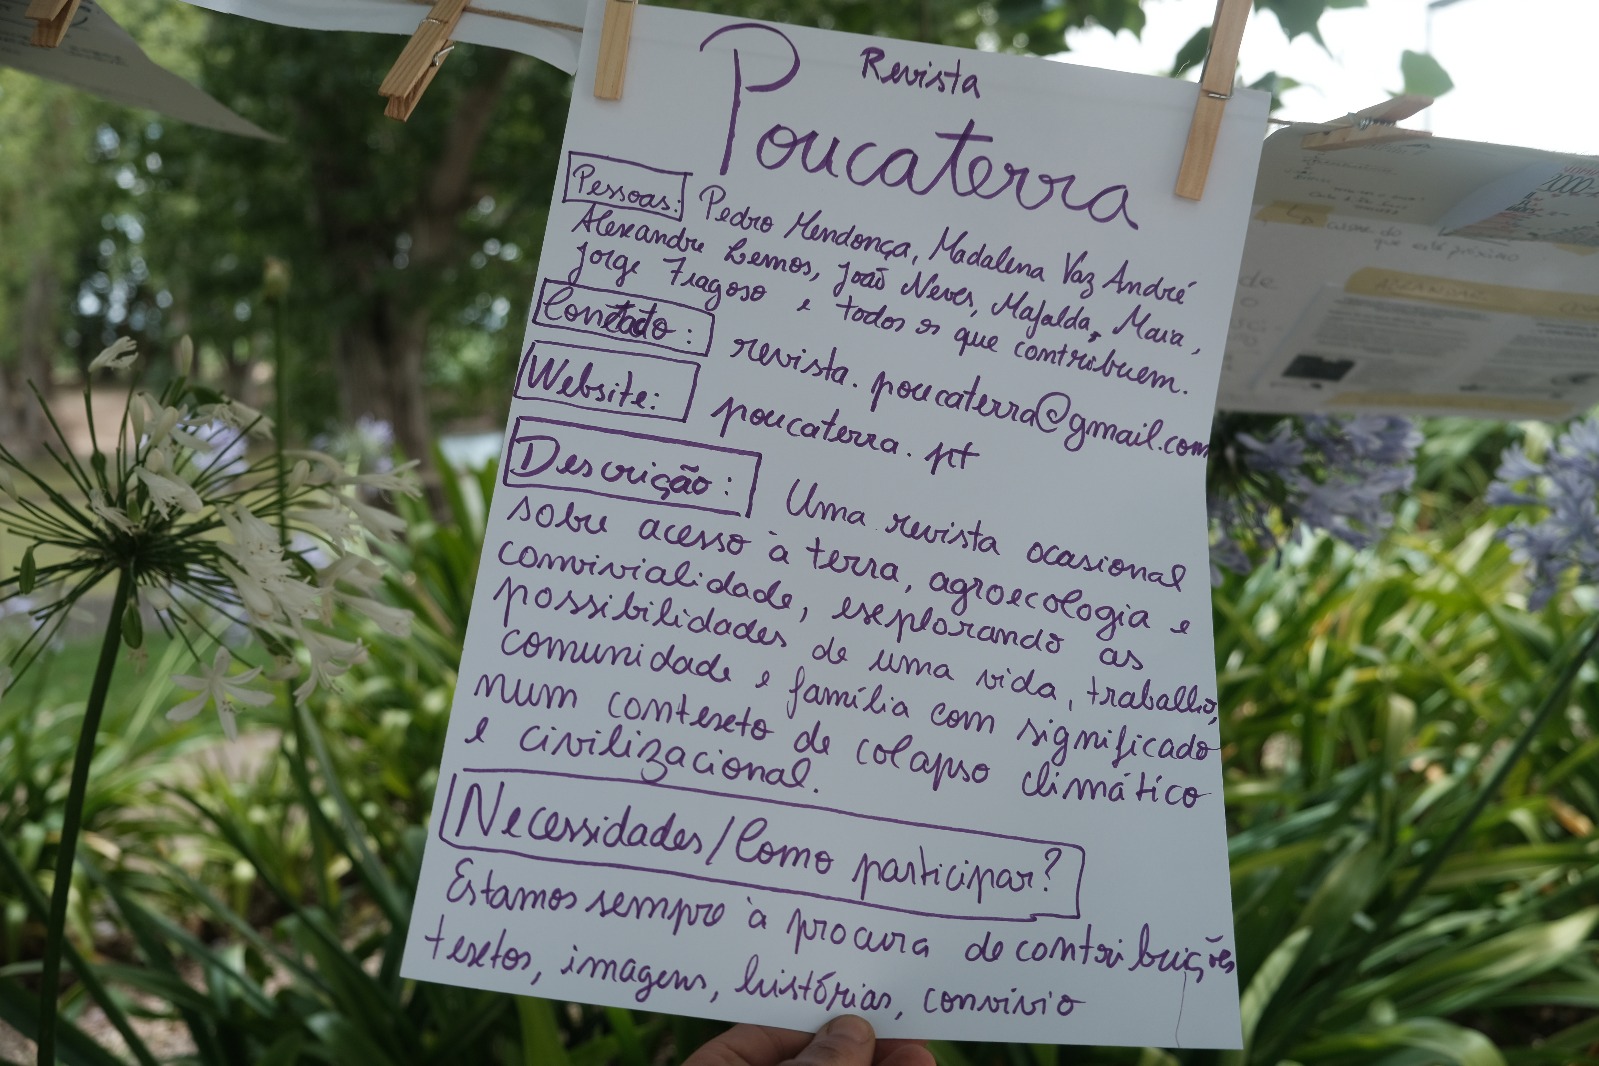 Revista
Poucaterra
Pessoas: Pedro Mendonça, Madalena Vaz André
Alexandre Lemos, João Neves, Mafalda, Mara,
Jorge Fragoso e todos os que contribuem.
Contato: revista.poucaterra@gmail.com
Website: poucaterra.pt
Descrição: Uma revista ocasional
sobre acesso à terra, agroecologia e
convivialidade, explorando as
possibilidades de uma vida, trabalho,
comunidade e família com significado
num contexto de colapso climático
e civilizacional.
Necessidades/Como participar?
Estamos sempre à procura de contribuições
textos, imagens, histórias, convívio
que está próximo